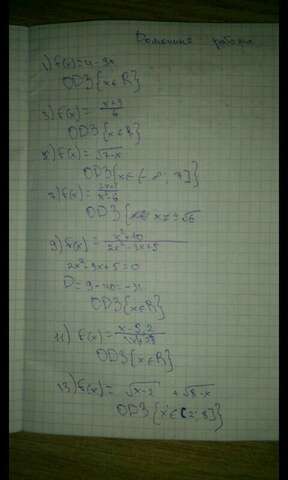 Домашня робота
1) f(x)=4-9x
ОДЗ{x∈R}
3) f(x)= (x+9)/4
ОДЗ{x∈R}
5) f(x)=√7-x
ОДЗ{x∈(-∞; 7]}
ОДЗ{ x≠±√6
9) f(x)= (x²+10)/(2x²-3x+5)
2x²-3x+5=0
D=9-40=-31
ОДЗ{x∈R}
11) f(x)=
ОДЗ{x∈R}
13) f(x)= √x-2 +√8-x
ОДЗ{x∈[2;8]}